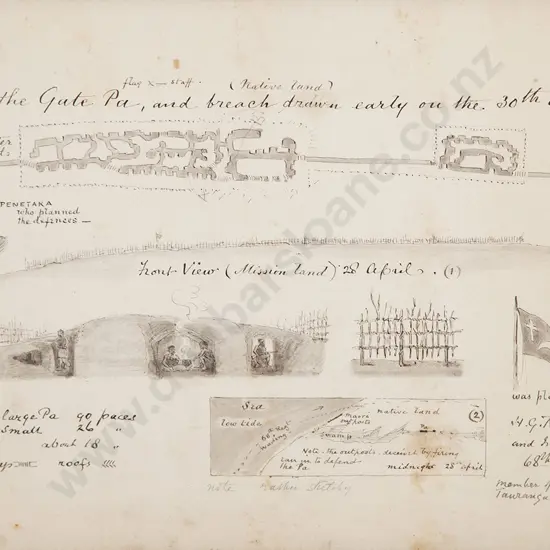 flag X — staff.
(Native land)
the Gate Pa, and breach drawn early on the 30th
PENETAKA
who planned
the defences —
Front View (Mission land) 28 April. (1)
large Pa 90 paces
Small 26 "
about 18 "
roofs
Sea
low tide
68th Regt
wading
maori
outposts
native land
(2)
Swamp
Note - the outposts, deceived by firing
the Pa
midnight 28th April
note rasher sketchy
was pl
H.G.
and
68th
member of
Tauranga
www.dunbarsloane.co.nz